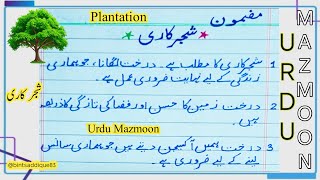 Plantation
مضمون
شجر کاری
1 شجرکاری کا مطلب ہے۔ درخت لگانا، جو ہماری
زندگی کے لیے نہایت ضروری عمل ہے۔
2 درخت زمین کا حسن اور فضا کی تازگی کا ذریعہ
ہیں۔
Urdu Mazmoon
3 درخت ہمیں آکسیجن دیتے ہیں جو ہماری سانس
لینے کے لیے ضروری ہے۔
شجر کاری
@bintsaddique83
URDU
MAZMOON